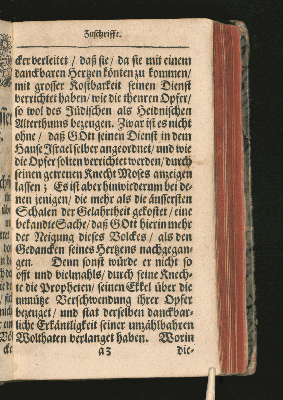 Zuschrifft.
cker verleitet / daß sie / da sie mit einem
danckbaren Hertzen könten zu kommen /
mit grosser Kostbarkeit seinen Dienst
verrichtet haben / wie die theuren Opfer /
so wol des Jüdischen als Heidnischen
Alterthums bezeugen. Zwar ist es nicht
ohne / daß GOtt seinen Dienst in dem
Hause Israel selber angeordnet / und wie
die Opfer solten verrichtet werden / durch
seinen getreuen Knecht Moses anzeigen
lassen; Es ist aber hinwiederum bei de-
nen jenigen / die mehr als die äussersten
Schalen der Gelahrtheit gekostet / eine
bekandte Sache / daß GOtt hierin mehr
der Neigung dieses Volckes / als den
Gedancken seines Hertzens nachgegan-
gen. Denn sonst würde er nicht so
offt und vielmahls / durch seine Knech-
te die Propheten / seinen Eckel über die
unnütze Verschwendung ihrer Opfer
bezeuget / und stat derselben danckbar-
liche Erkäntligkeit seiner unzählbahren
Wolthaten verlanget haben. Worin
a3 die-